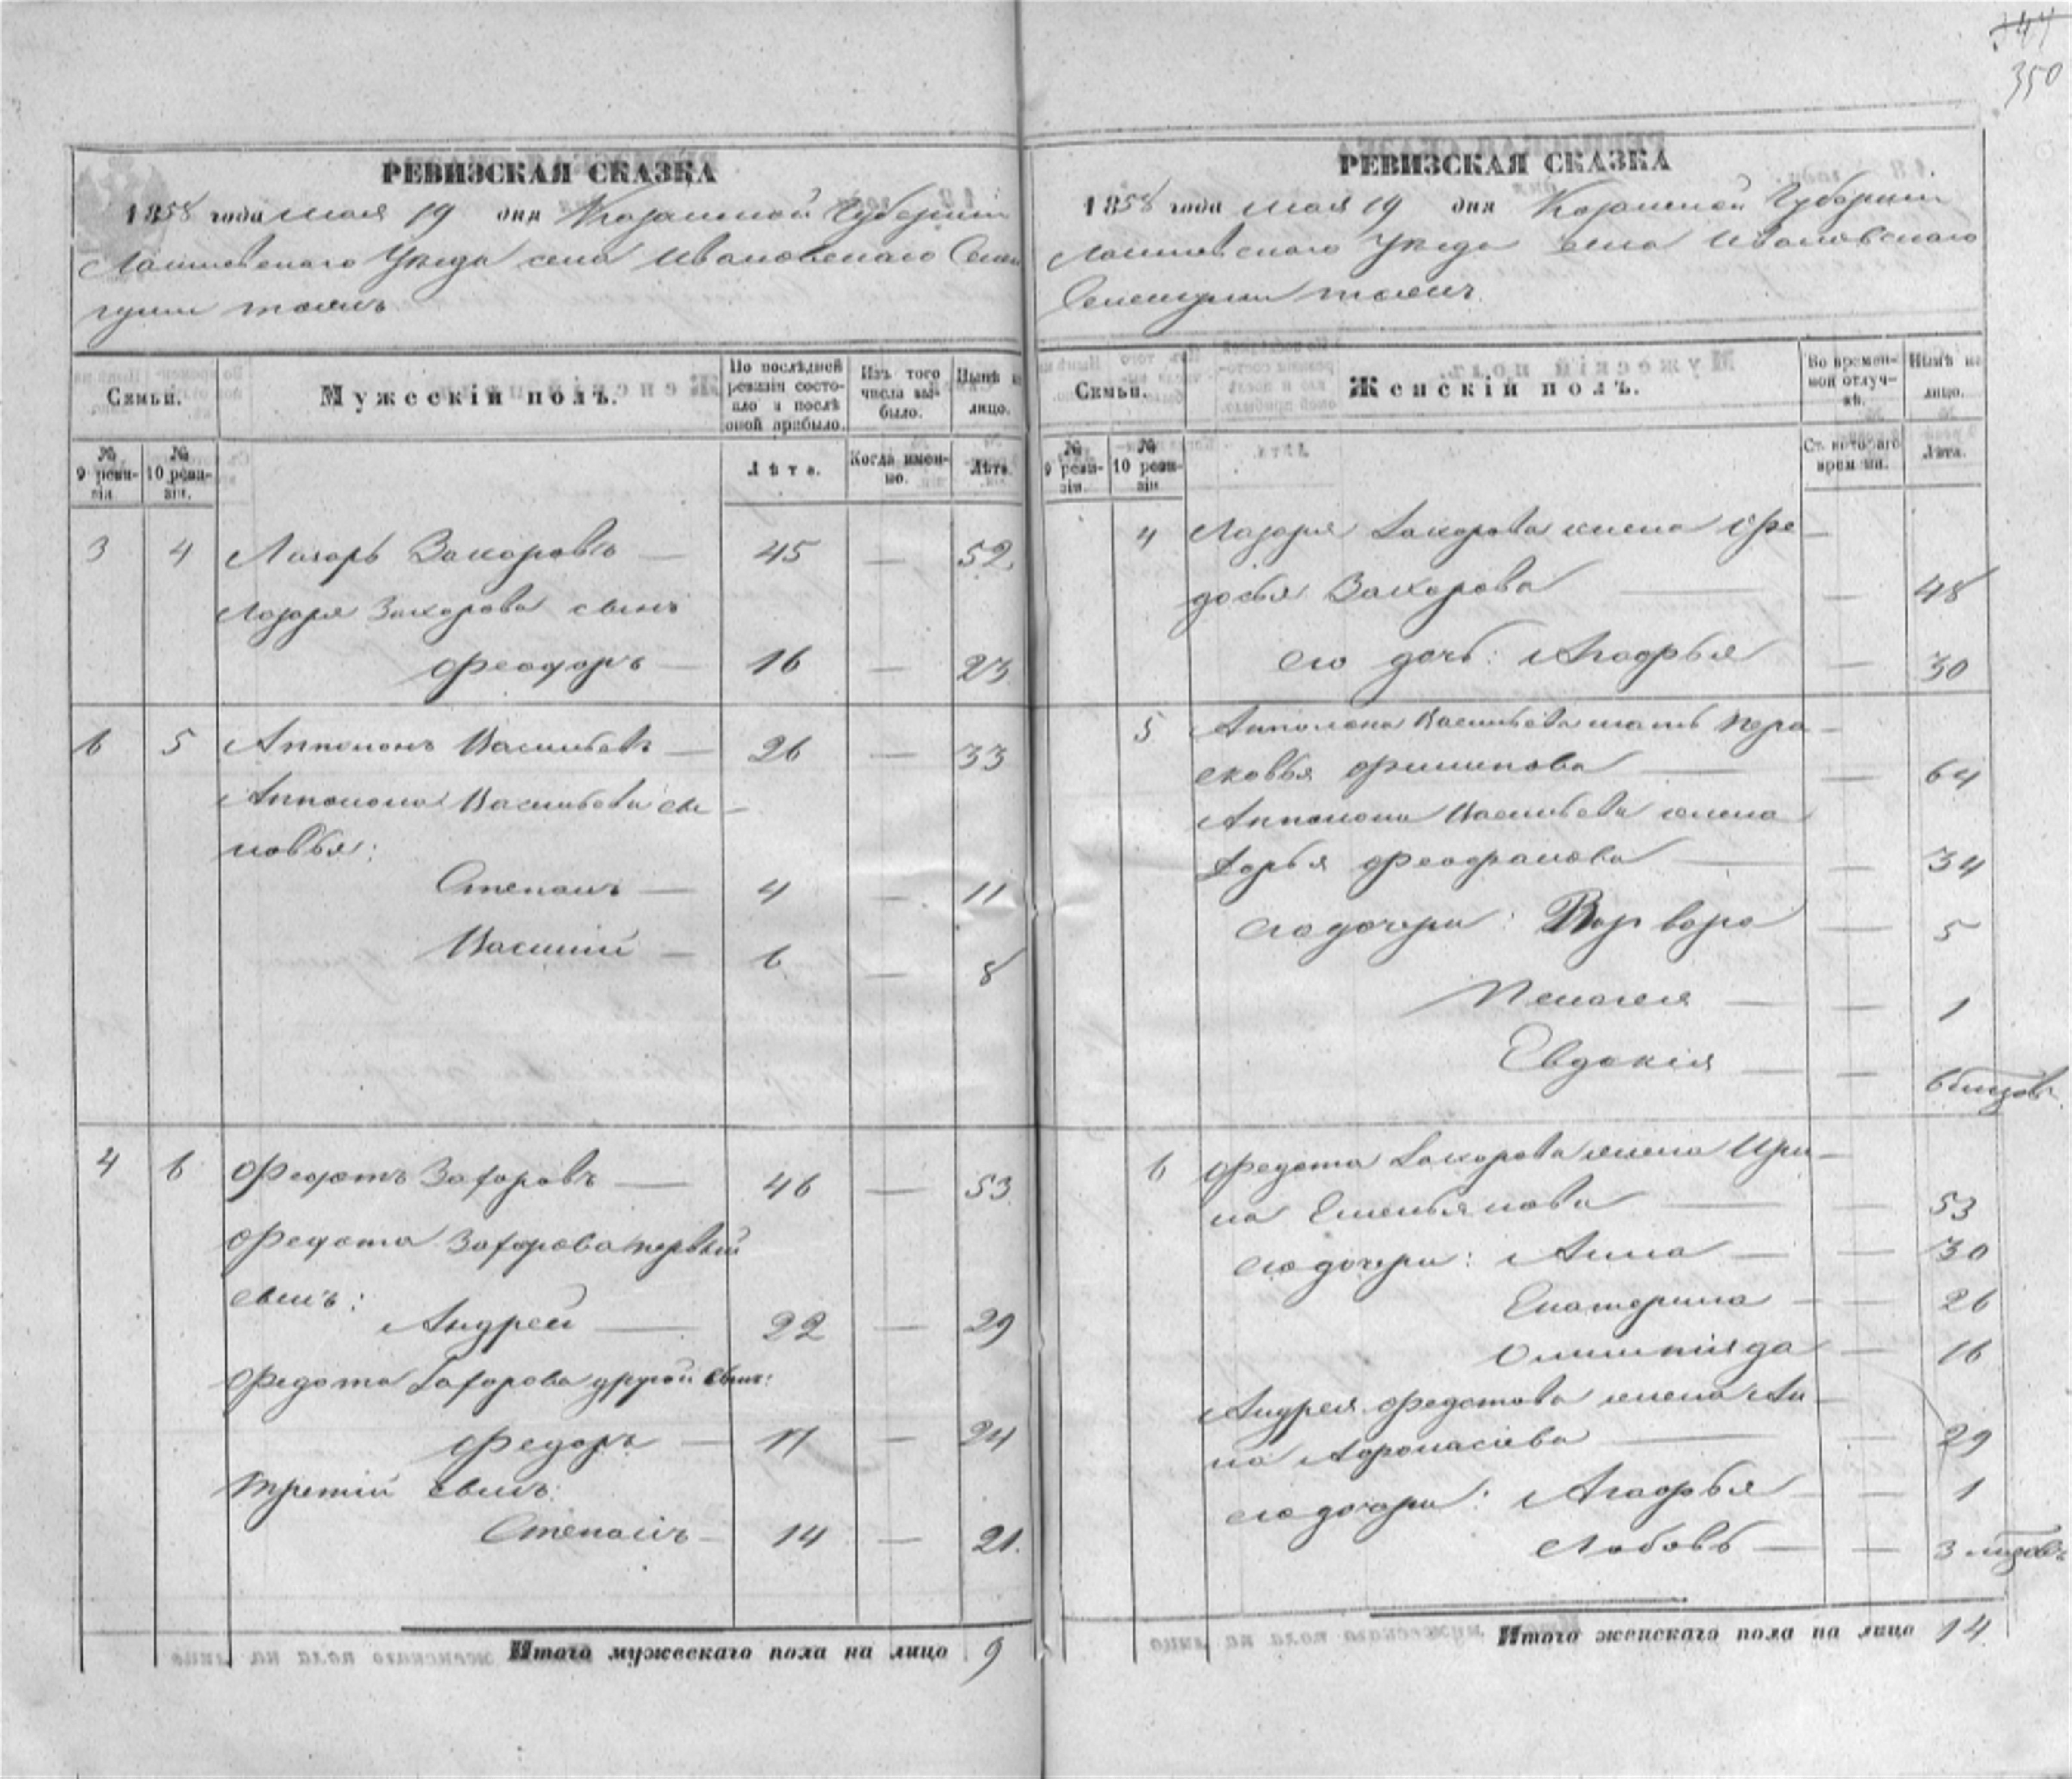 344
350
РЕВИЗСКАЯ СКАЗКА
1858 года мая 19 дня Казанской Губерніи
Лаишевскаго Уезда села Ивановскаго Селен
гуши тожъ
Семьи.
Мужескій полъ.
По послѣдней ревизіи состояло и послѣ оной прибыло.
Изъ того числа выбыло.
Нынѣ на лицо.
№ 9 ревизіи.
№ 10 ревизіи.
Лѣта.
Когда именно.
Лѣта.
3 4 Лазарь Захаровъ — 45 — 52
Лазаря Захарова сынъ
Феодоръ — 16 — 23
6 5 Апполонъ Васильевъ — 26 — 33
Апполона Васильева сы-
новья:
Степанъ — 4 — 11
Василій — 6 — 8
4 6 Федотъ Захаровъ — 46 — 53
Федота Захарова первый
сынъ:
Андрей — 22 — 29
Федота Захарова другой сынъ:
Федоръ — 17 — 24
третій сынъ
Степанъ — 14 — 21.
Итого мужескаго пола на лицо 9
РЕВИЗСКАЯ СКАЗКА
1858 года мая 19 дня Казанской Губерніи
Лаишевскаго Уезда села Ивановскаго
тожъ
Семьи.
Женскій полъ.
Во временной отлучкѣ.
Нынѣ на лицо.
№ 9 ревизіи.
№ 10 ревизіи
Съ котораго времени.
Лѣта.
4 Лазаря Захарова жена Фе-
досья Захарова — — 48
его дочь: Агафья — 30
5 Апполона Васильева мать Пера-
сковья Филипова — — 64
Апполона Васильева жена
Дарья Феофанова — — 34
его дочери: Варвара — 5
Пелагея — — 1
Евдокія — — 6 мицовъ
6 Федота Захарова жена Ири-
на Емельянова — — 53
его дочери: Анна — — 30
Екатерина — — 26
Олимпіяда — 16
Андрея Федотова жена Ан-
на Афонасіева — — 29
его дочери: Агафья — — 1
Любовь — — 3 мицовъ
Итого женскаго пола на лицо 14